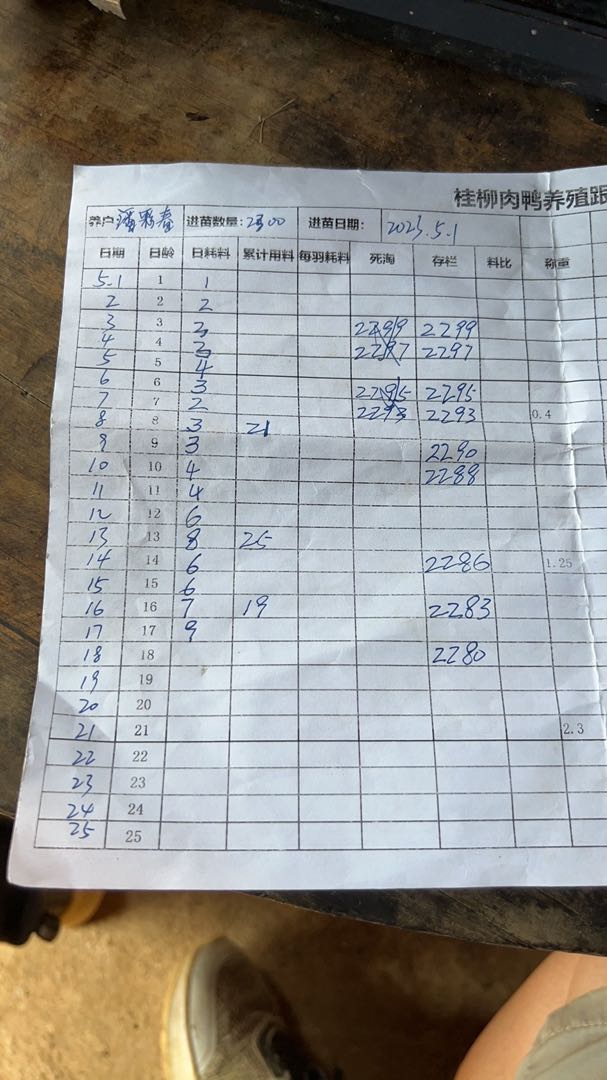 桂柳肉鸭养殖跟
养户 潘彩春 进苗数量:2300 进苗日期: 2023.5.1
日期 日龄 日耗料 累计用料 每羽耗料 死淘 存栏 料比 称重
5.1 1 1
2 2 2
3 3 2 2299 2299
4 4 2297 2297
5 5 4
6 6 3 2295 2295
7 7 2 2293 2293 0.4
8 8 3 21
9 9 3 2290
10 10 4 2288
11 11 4
12 12 6
13 13 8 25
14 14 6 2286 1.25
15 15 6
16 16 7 19 2283
17 17 9
18 18 2280
19 19
20 20
21 21 2.3
22 22
23 23
24 24
25 25